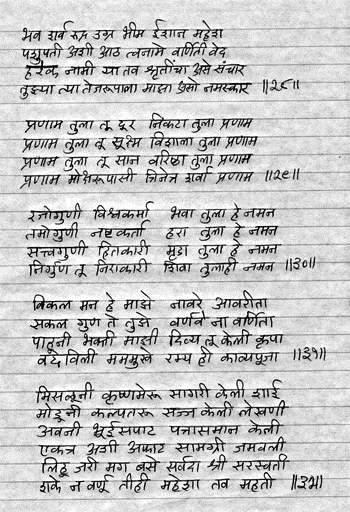 भव शर्व रुद्र उग्र भीम ईशान महेश
पशुपती अशी आठ त्वनामे वर्णिती वेद
हरेक नामी या तव श्रृतींचा असे संचार
तुझ्या त्या तेजरूपाला माझा असो नमस्कार ॥२८॥
प्रणाम तुला तू दूर निकटा तुला प्रणाम
प्रणाम तुला तू सूक्ष्म विशाला तुला प्रणाम
प्रणाम तुला तू सान वरिष्ठा तुला प्रणाम
प्रणाम मोक्षरूपासी त्रिनेत्र शर्वा प्रणाम ॥२९॥
रजोगुणी विश्वकर्मा भवा तुला हे नमन
तमोगुणी नष्टकर्ता हरा तुला हे नमन
सत्त्वगुणी हितकारी मृडा तुला हे नमन
निर्गुण तू निराकारी शिवा तुलाही नमन ॥३०॥
विकल मन हे माझे नावरे आवरीता
सकल गुण ते तुझे वर्णवे ना वर्णिता
पाहूनी भक्ती माझी दिव्य तू केली कृपा
वदविली मममुखे रम्य ही काव्यपूजा ॥३१॥
मिसळूनी कृष्णमेरू सागरी केली शाई
मोडूनी कल्पतरू सज्ज केली लेखणी
अवनी भूईसपाट पत्रासमान केली
एकत्र अशी अफाट सामग्री जमवली
लिहू जरी मग बसे सर्वदा श्री सरस्वती
शके न वर्णू तीही महेशा तव महती ॥३२॥